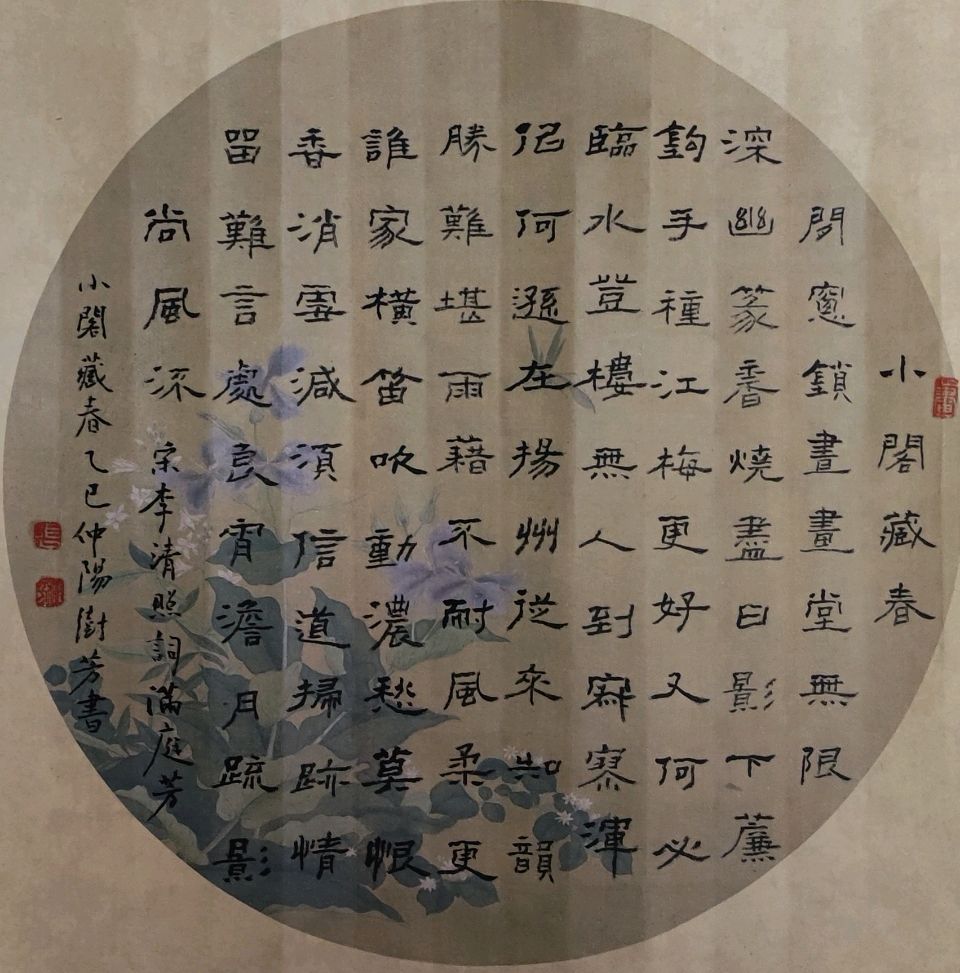 小閣藏春
閒窗鎖晝晝堂無限
深幽篆香燒盡日影下簾
鉤手種江梅更好又何必
臨水登樓無人到寂寥渾
似何遜在揚州從來知韻
勝難堪雨藉不耐風柔更
誰家橫笛吹動濃愁莫恨
香消雪減須信道掃跡情
留難言處良宵澹月疏影
尚風流
宋李清照詞滿庭芳
小閣藏春乙巳仲陽樹芳書